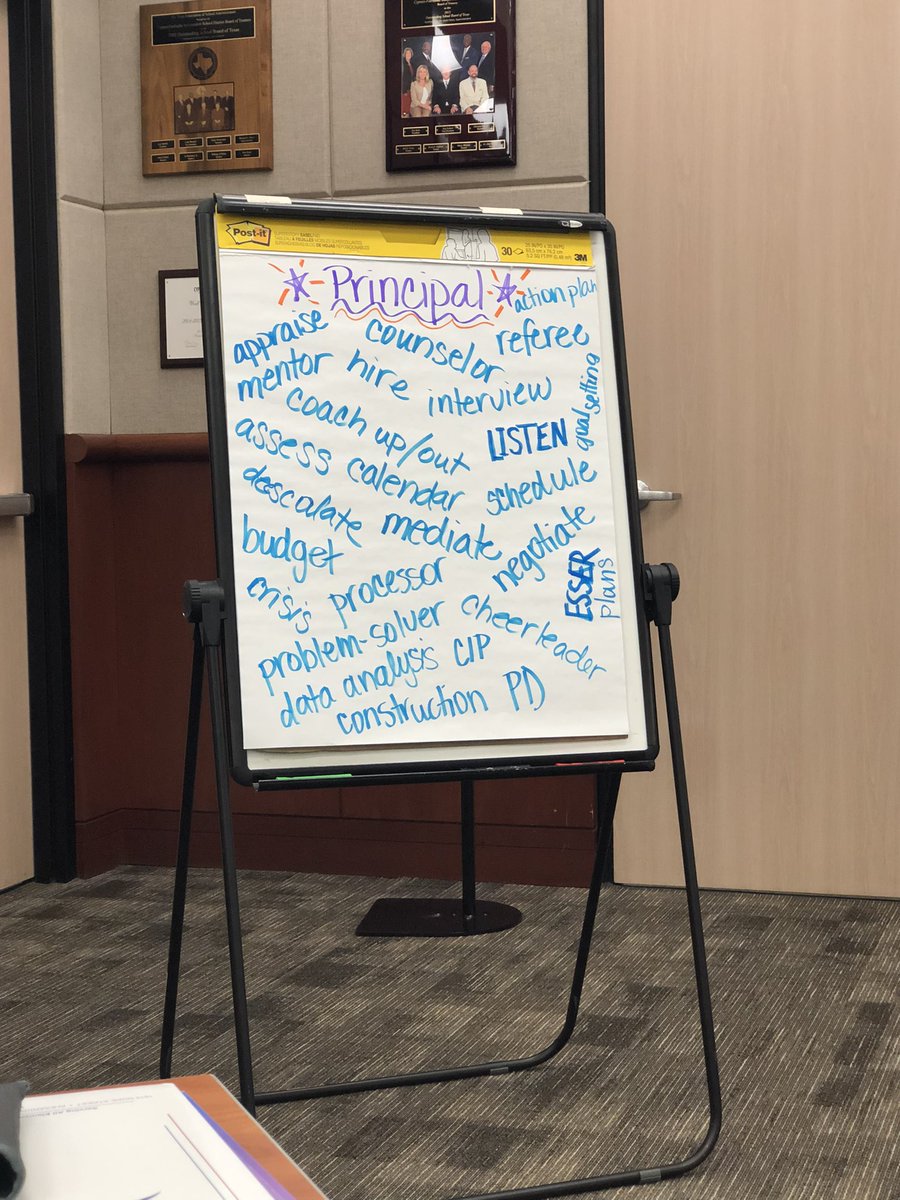 Outstanding School Board of Texas
Board of Trustees
Post-it
30
3M
Principal
action plan
appraise
counselor
referee
mentor
hire
interview
goal setting
coach up/out
LISTEN
assess
calendar
schedule
deescalate
mediate
negotiate
budget
ESSER plans
crisis
processor
problem-solver
cheerleader
data analysis
CIP
construction
PD